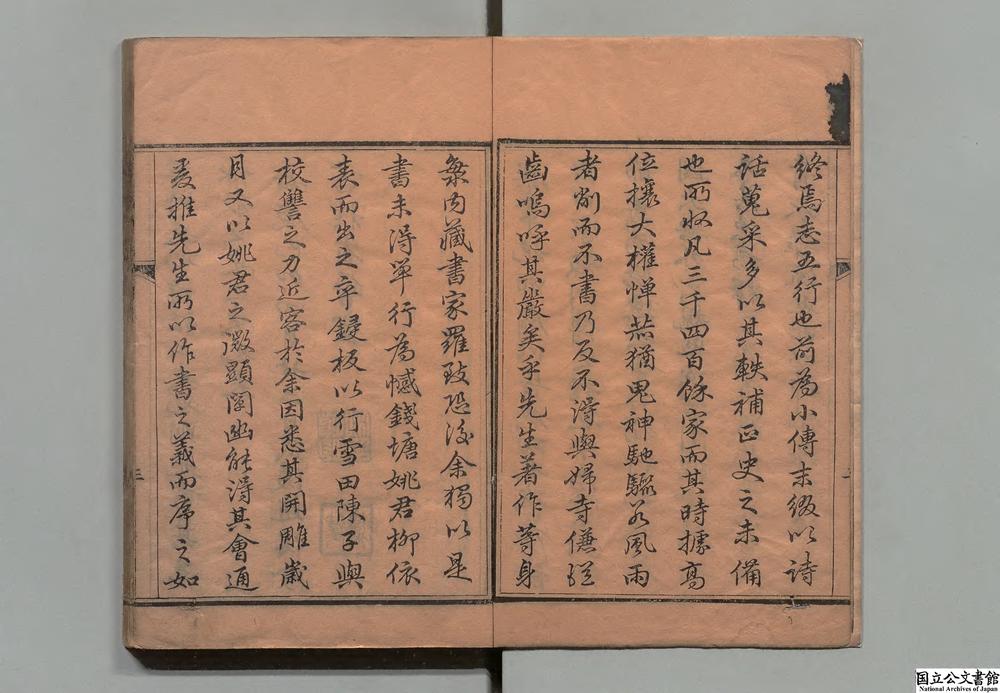 終焉志五行也前為小傳末綴以詩
話蒐采多以其軼補正史之未備
也所收凡三千四百餘家而其時據高
位攘大權憚赫猶鬼神馳驟若風雨
者削而不書乃反不得與婦寺傔從
齒嗚呼其嚴矣乎先生著作等身
寰內藏書家羅致恐後余獨以是
書未得單行為憾錢塘姚君柳依
表而出之卒鋟板以行雪田陳子與
校讐之力近客於余因悉其開雕歲
月又以姚君之微顯闡幽能得其會通
爰推先生所以作書之義而序之如
三
国立公文書館
National Archives of Japan